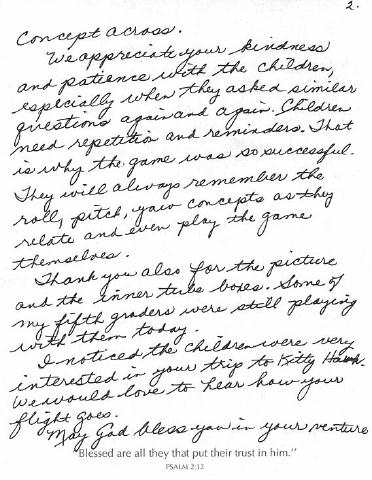 2.
Concept across.
We appreciate your kindness
and patience with the children,
especially when they asked similar
questions again and again. Children
need repetition and reminders. That
is why the game was so successful.
They will always remember the
roll, pitch, yaw concepts as they
relate and even play the game
themselves.
Thank you also for the picture
and the inner tube boxes. Some of
my fifth graders were still playing
with them today.
I noticed the children were very
interested in your trip to Kitty Hawk.
We would love to hear how your
flight goes.
May God bless you in your venture
"Blessed are all they that put their trust in him."
PSALM 2:12